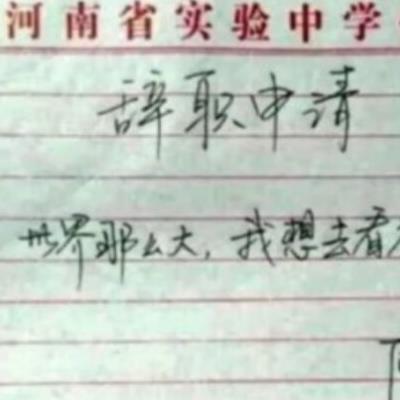 河南省实验中学
辞职申请
世界那么大，我想去看